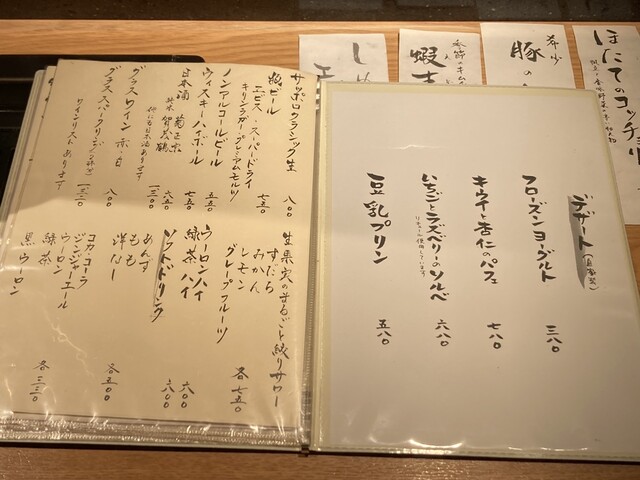 デザート(自家製)
フローズンヨーグルト 三八〇
キウイと杏仁のパフェ 七八〇
いちごとラズベリーのソルベ 六八〇
リキュール使用しています
豆乳プリン 五八〇
サッポロクラシック生 八〇〇
瓶ビール
エビス・スーパードライ
キリンラガー・プレミアムモルツ 七五〇
ノンアルコールビール 五五〇
ウィスキーハイボール 七五〇
日本酒 菊正宗 六五〇
純米 賀茂鶴
他にも日本酒あります
グラスワイン 赤・白 八〇〇
ワインリストあります
生果実のまるごと絞りサワー
すだち
みかん
レモン
グレープフルーツ 各七五〇
ウーロンハイ 六〇〇
緑茶ハイ 六〇〇
ソフトドリンク
あんず
もも
洋なし 各五〇〇
コカ・コーラ
ジンジャーエール
ウーロン
緑茶
黒ウーロン 各三三〇
ほたての
希少
豚の
季節の